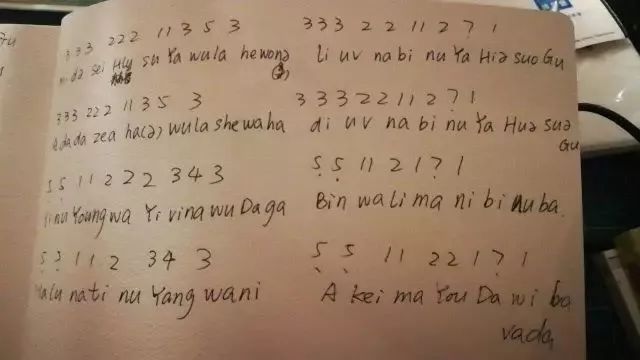 3 3 3 2 2 2 1 1 3 5 3
da sei su Ya wula hewong
3 3 3 2 2 1 1 2 7 1
Li uv nabi nu Ya Hia suo Gu
3 3 3 2 2 2 1 1 3 5 3
dada zea ha(a) wula shewaha
3 3 3 2 2 1 1 2 7 1
di uv nabi nu Ya Hua sua
Gu
5 5 1 1 2 2 2 3 4 3
Young wa Yi vina wu Daga
5 5 1 1 2 1 7 1
Bin wa li ma ni bi nu ba.
5 5 1 1 2 3 4 3
nati nu Yang wani
5 5 1 1 2 2 1 7 1
A kei ma You Da wi ba
vada